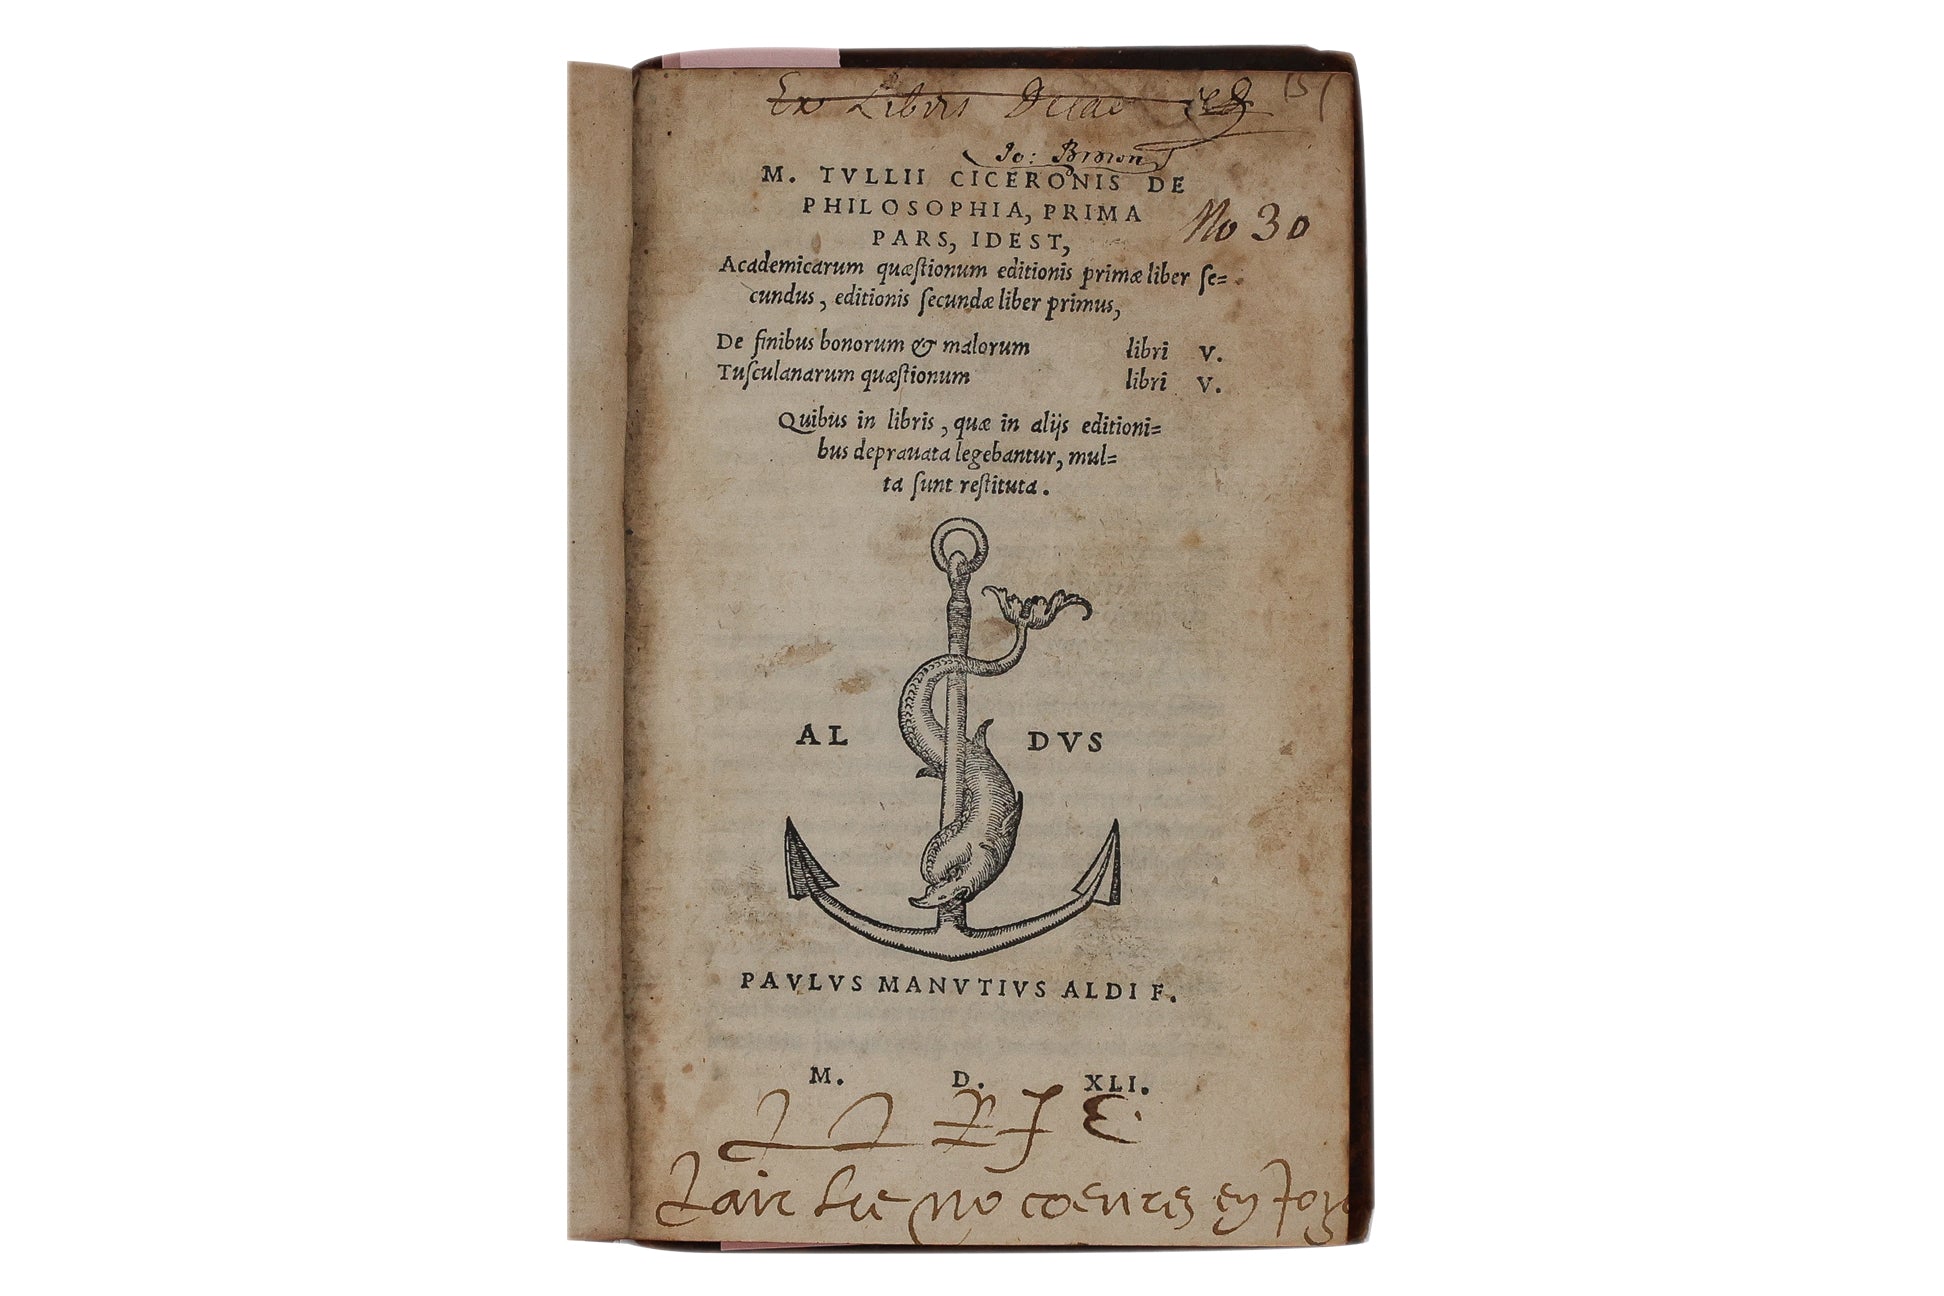 Ex Libris
151
Jo: Brown
M. TVLLII CICERONIS DE
PHILOSOPHIA, PRIMA
No 30
PARS, IDEST,
Academicarum quæſtionum editionis primæ liber ſe=
cundus, editionis ſecundæ liber primus,
De finibus bonorum & malorum libri V.
Tuſculanarum quæſtionum libri V.
Quibus in libris, quæ in alijs editioni=
bus deprauata legebantur, mul=
ta ſunt reſtituta.
AL DVS
PAVLVS MANVTIVS ALDI F.
M. D. XLI.